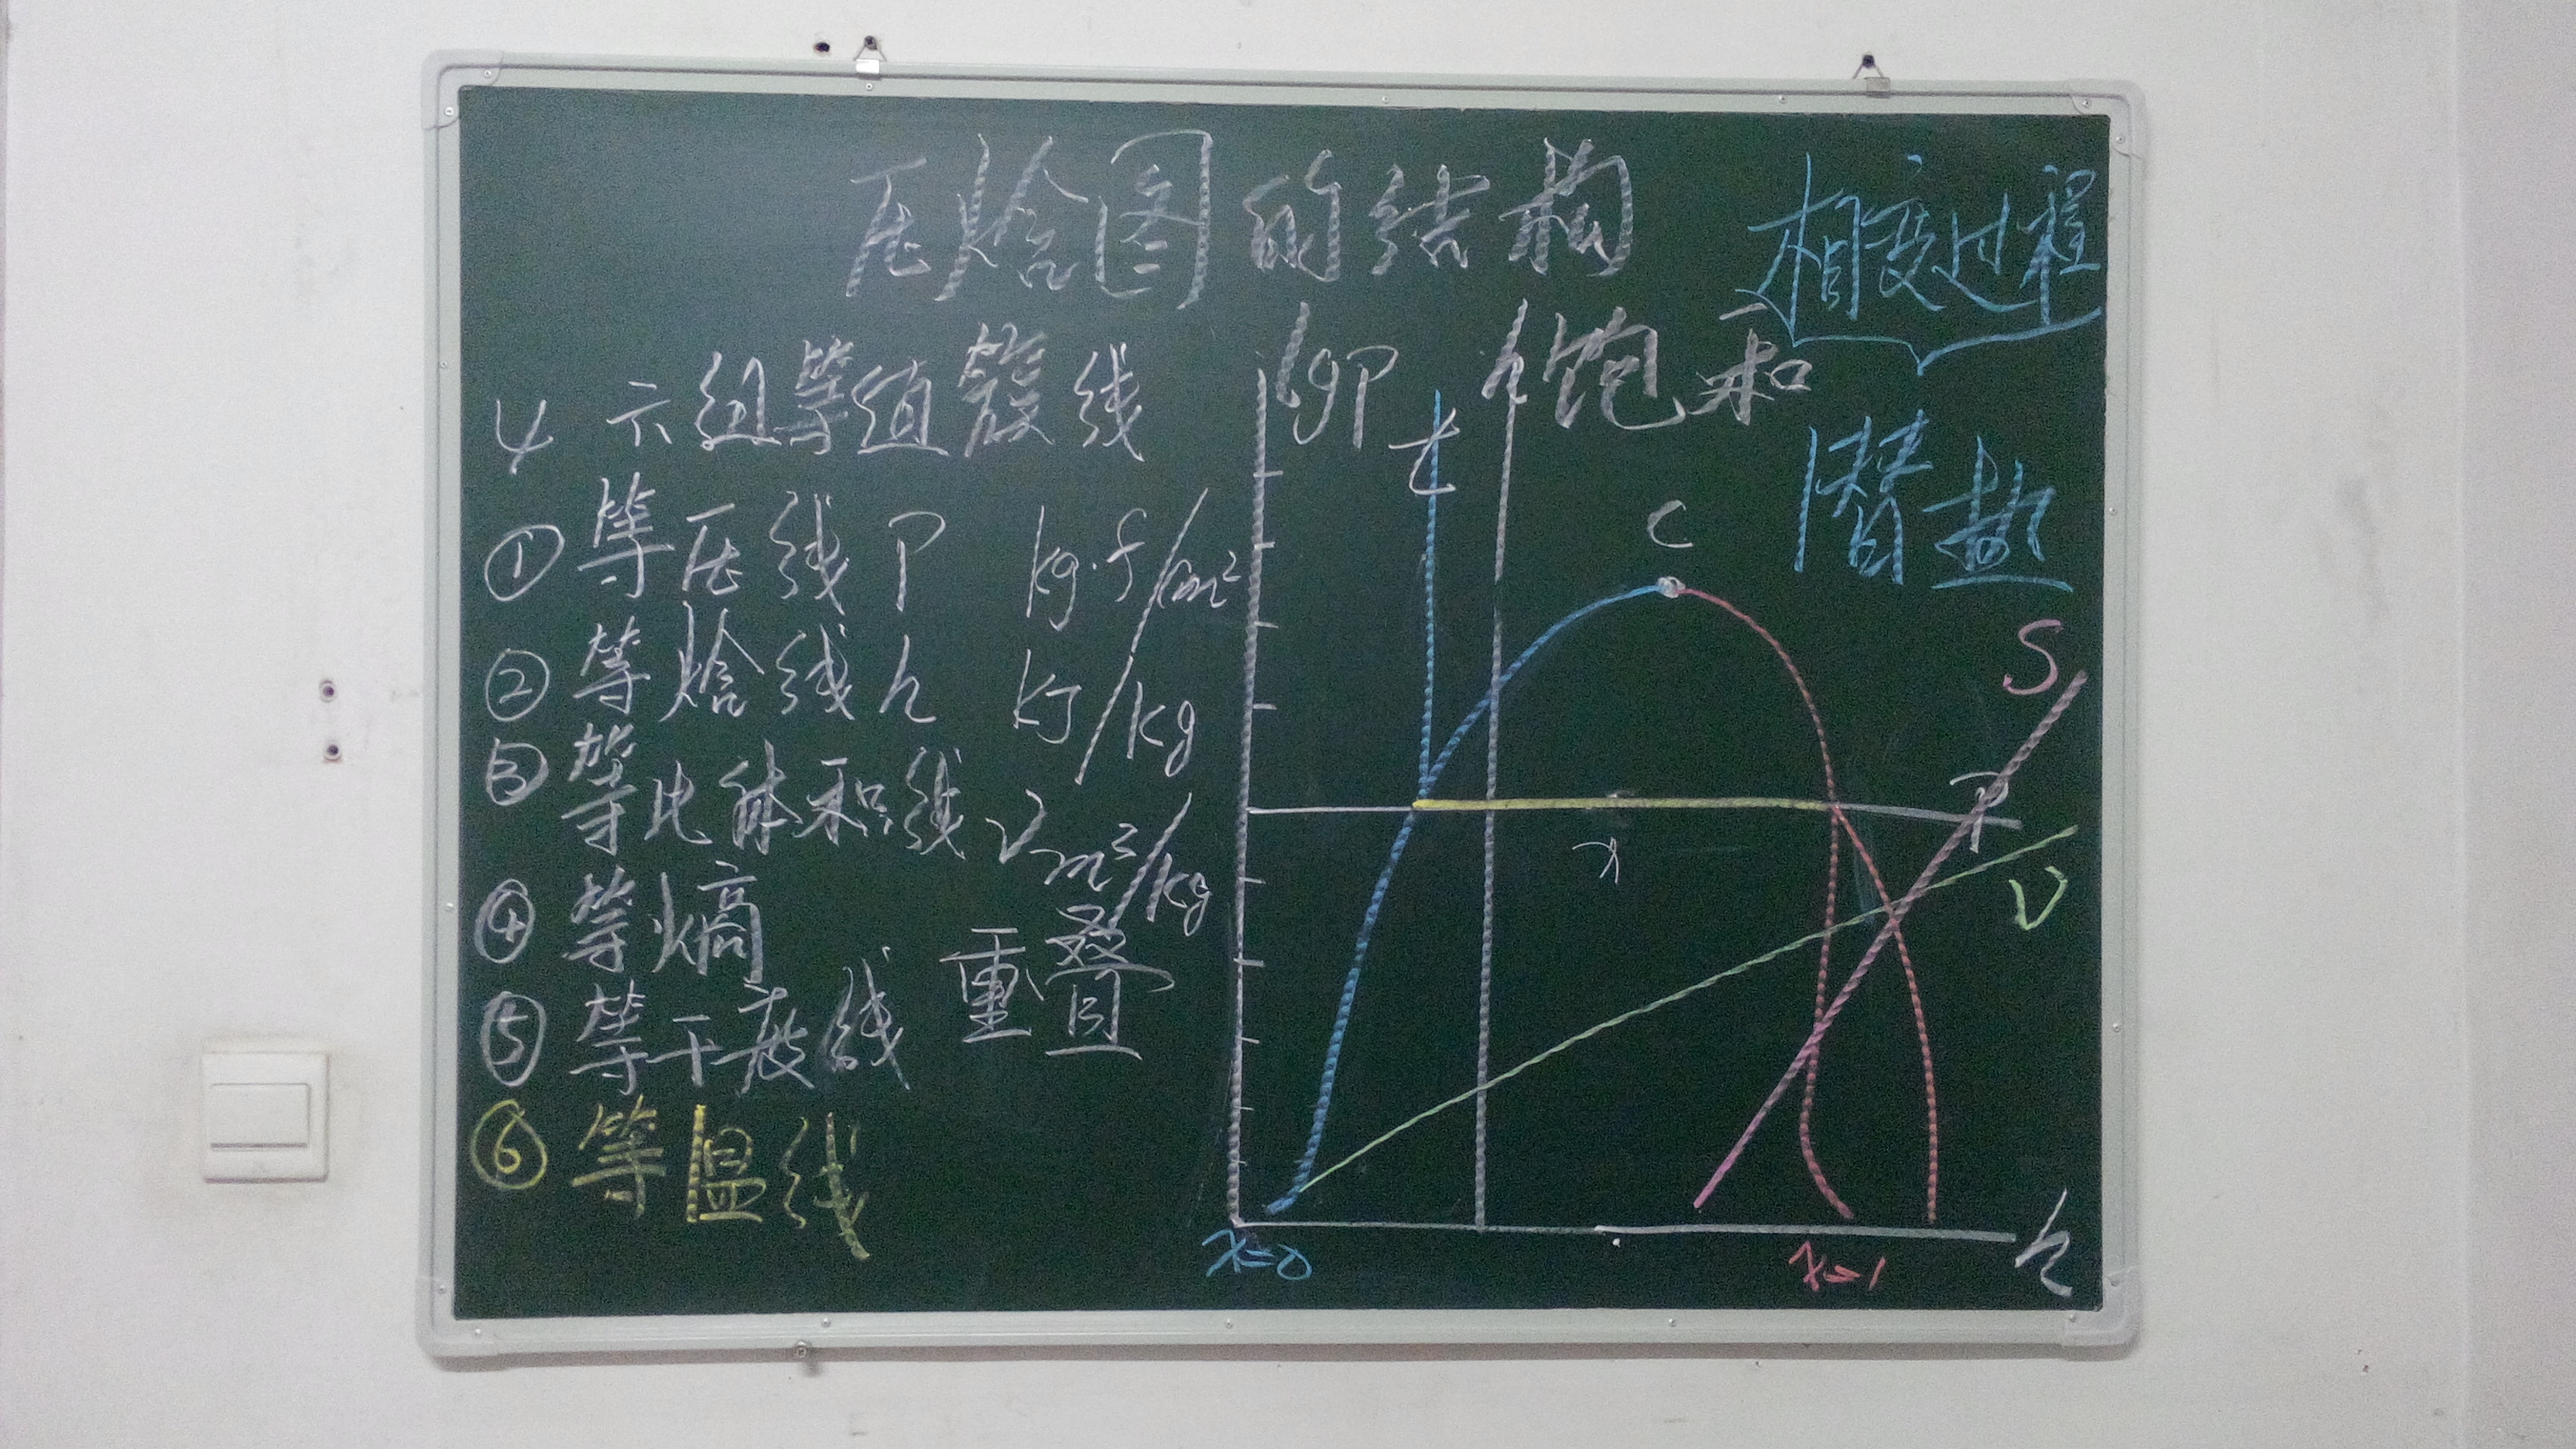 压焓图的结构
相变过程
4 六组等值簇线
① 等压线 P kg·f/cm²
② 等焓线 h kJ/kg
③ 等比体积线 ν m³/kg
④ 等熵
⑤ 等干度线 重叠
⑥ 等温线
lgP
h 饱和
潜热
t
C
S
P
x
ν
h
x=0
x=1